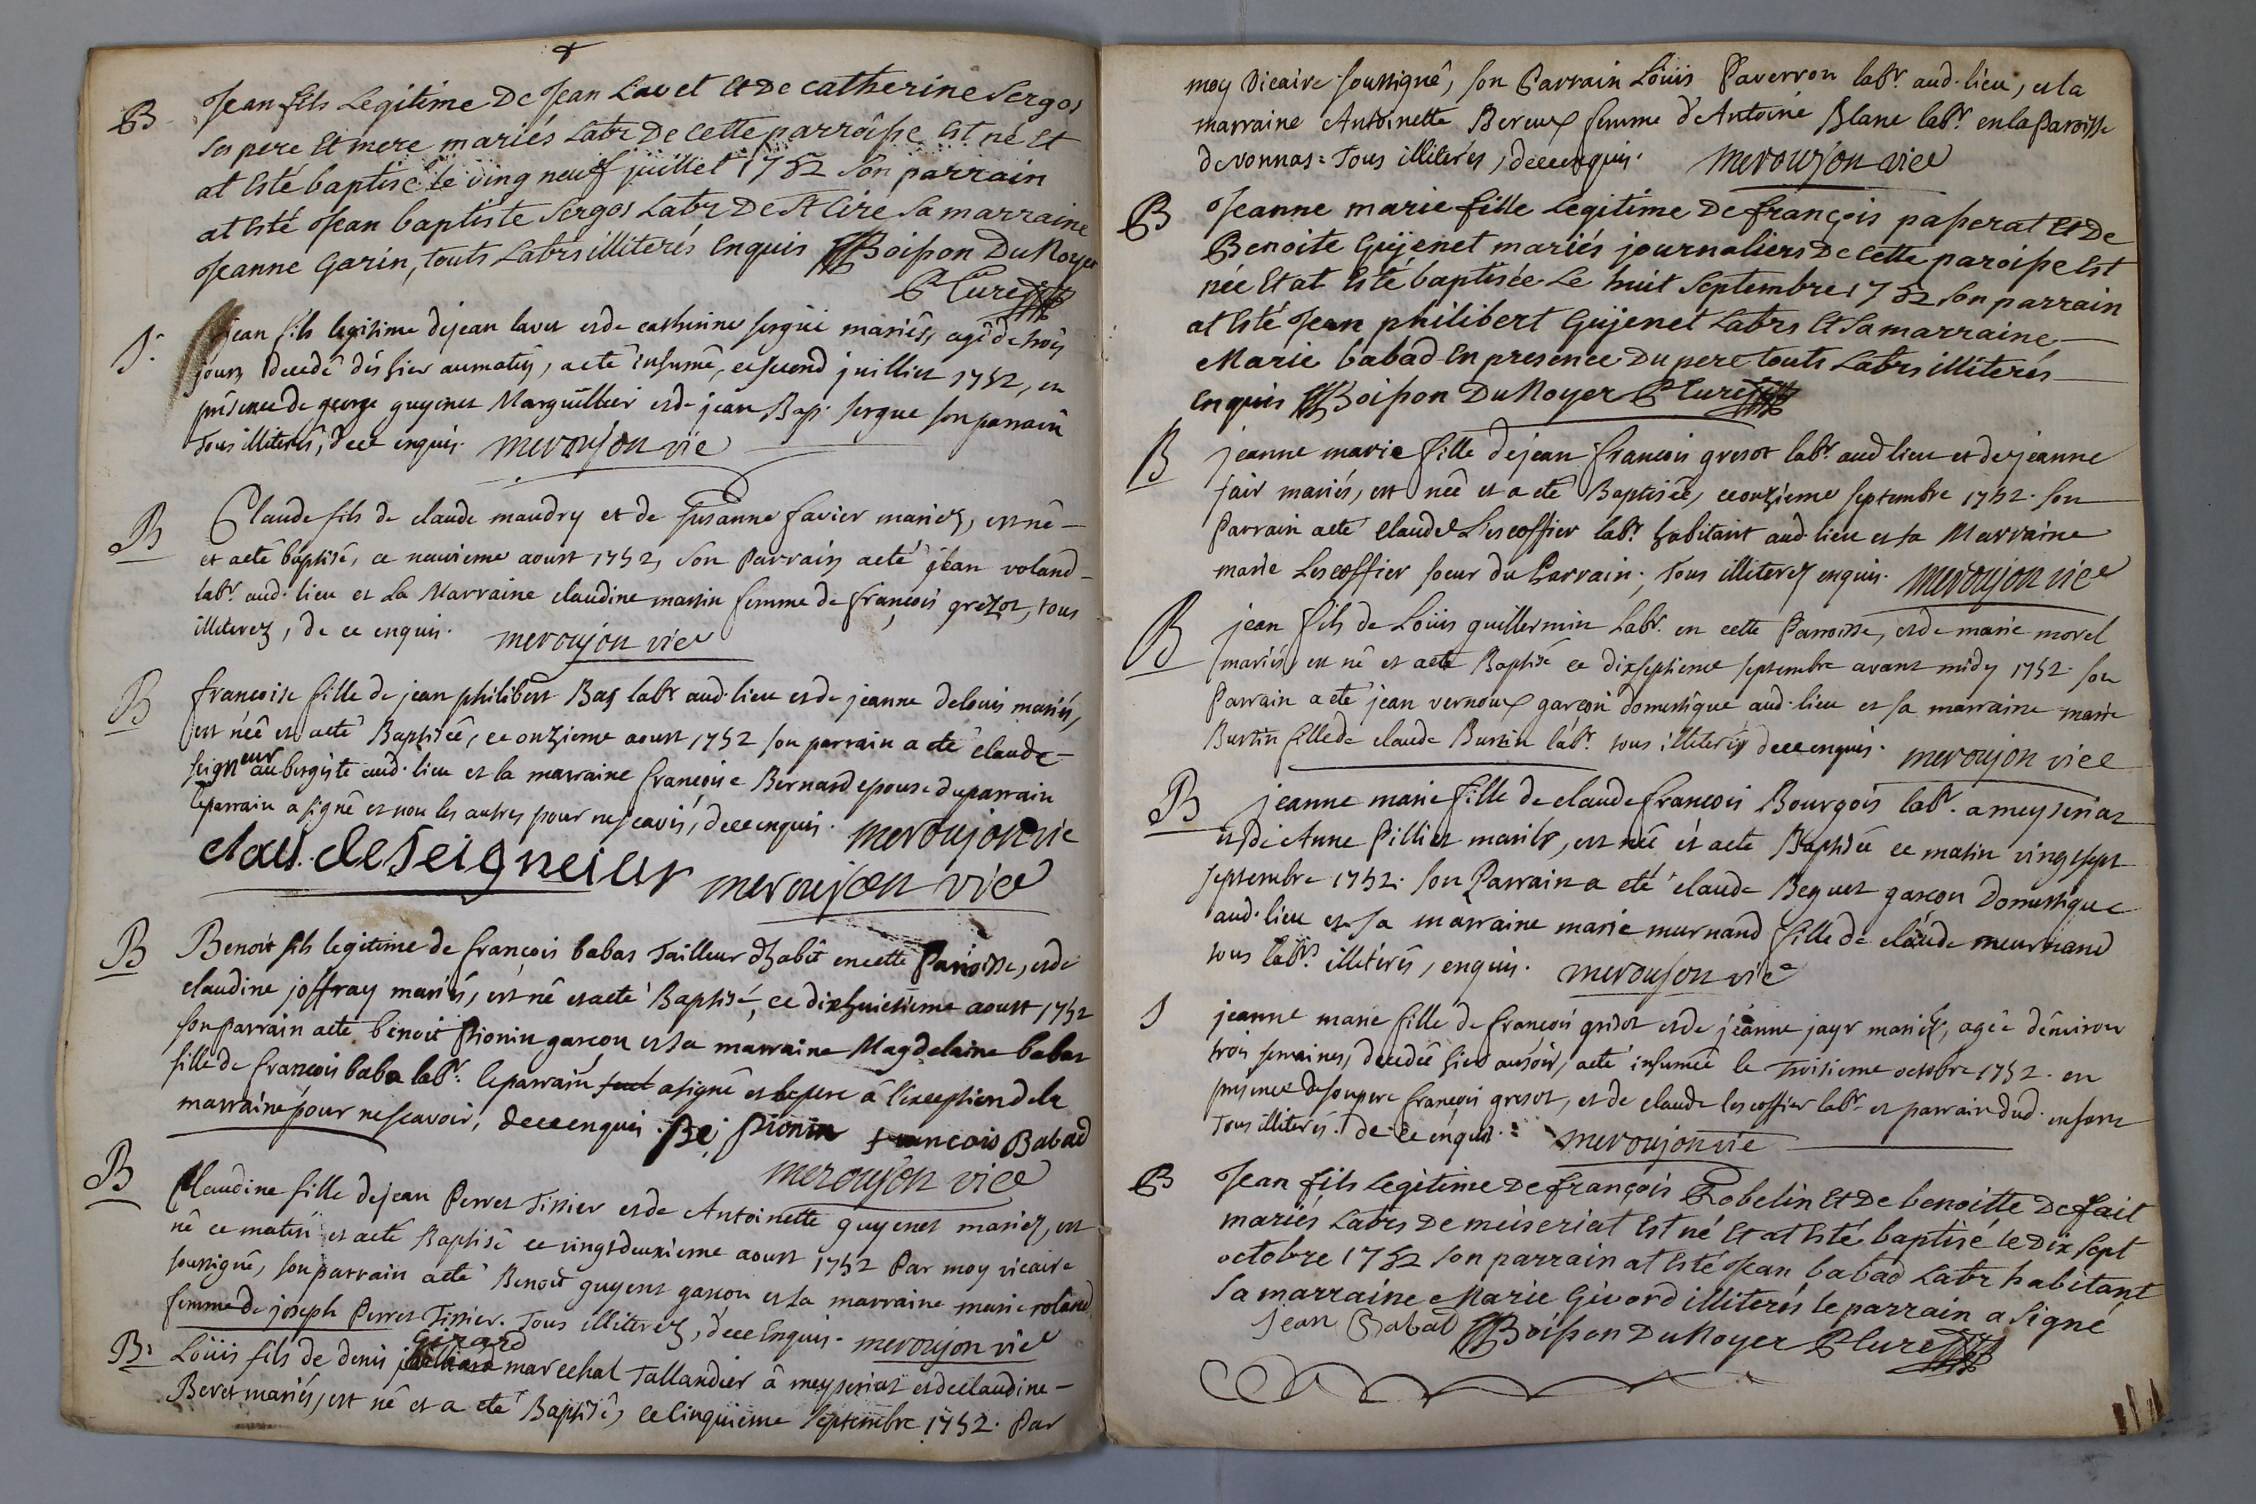 B Jean fils Legitime De Jean Lavet Et De catherine Sergos
ses pere Et mere mariés Labrs De cette parroisse Est né Et
at Esté baptisé le ving neuf juillet 1752 Son parrain
at Esté Jean baptiste Sergos Labr De St Cire Sa marraine
Jeanne Garin, touts Labrs illiterés Enquis Boisson DuNoyer
Curé
S. jean fils legitime de jean lavet et de catherine sergue mariés, agé de trois
jours decedé dés hier au matin, a eté inhumé, ce second juillier 1752, en
présence de george guyenet Marguillier et de jean Bap. sergue son parrain
Tous illiterés, de ce enquis. meroujon vic
B Claude fils de claude maudry et de susanne favier mariez, est né
et a eté baptisé, ce neuvieme aoust 1752, Son Parrain a eté jean voland
labr. aud. lieu et La Marraine claudine martin femme de françois grézot, tous
illiterez, de ce enquis. meroujon vice
B francoise fille de jean philibert Bas labr aud. lieu et de jeanne delouis mariés,
est née et a eté Baptisée, ce onzieme aoust 1752 son parrain a eté claude
seigneur aubergiste aud. lieu et la marraine françoise Bernard epouse du parrain
le parrain a signé et non les autres pour ne scavoir, de ce enquis. meroujon vic
claude seigneieur meroujon vice
B Benoit fils legitime de françois babas Tailleur d'habit en cette Parroisse, et de
claudine joffray mariés, est né et a eté Baptisé, ce dixhuictieme aoust 1752
son parrain a eté benoit Pionin garcon et sa marraine Magdelaine babas
fille de francois baba labr. le parrain seul a signé et le pere à l'exception de la
marraine pour ne scavoir, de ce enquis. Be. pionin francois Babad
meroujon vice
B Claudine fille de jean Perret Tissier et de Antoinette guyenet mariez, est
né ce matin et a eté Baptisé ce vingtdeuxieme aoust 1752 Par moy vicaire
soussigné, son parrain a eté Benoit guyenet garcon et sa marraine marie roland
femme de joseph Perret Tissier. Tous illiterez, de ce Enquis. meroujon vice
B. Louis fils de denis Girard marechal Tallandier à meyseriat et de claudine
Beret mariés, est né et a eté Baptisé, ce Cinquieme septembre 1752. Par
moy vicaire soussigné, son Parrain Louis Paverron labr. aud. lieu, et la
marraine Antoinette Bereux femme d'Antoine Blanc labr. en la Paroisse
de vonnas: Tous illiterés, de ce enquis. meroujon vice
B Jeanne marie fille Legitime De françois passerat Et De
Benoite Guyenet mariés journaliers De Cette paroisse Est
née Et at Esté baptisée Le huit Septembre 1752 Son parrain
at Esté Jean philibert Guyenet Labrs Et Sa marraine
Marie babad En presence Du pere touts Labrs illiterés
Enquis Boisson DuNoyer Curé
B jeanne marie fille de jean françois gresot labr. aud lieu et de jeanne
jair mariés, est née et a eté Baptisée, ce onzieme septembre 1752. son
Parrain a eté claude Lescoffier labr. habitant aud. lieu et sa Marraine
marie Lescoffier soeur du Parrain; Tous illiterez enquis. meroujon vice
B jean fils de Loüis guillermin Labr. en cette Parroisse, et de marie morel
mariés, est né et a eté Baptisé ce dixseptieme septembre avant midy 1752. son
Parrain a eté jean vernoux garcon domestique aud. lieu et sa marraine marie
Burtin fille de claude Burtin labr. tous illiterés de ce enquis. meroujon vice
B jeanne marie fille de claude francois Bourgois labr. a meyseriat
et de Anne Pillier mariés, est née et a eté Baptisée ce matin vingt sept
septembre 1752. son Parrain a eté claude Beguet garcon Domestique
aud. lieu et sa marraine marie murnand fille de claude meurnand
tous labrs. illiterés, enquis. meroujon vice
S jeanne marie fille de françois grisot et de jeanne jayr mariez, agée d'environ
trois semaines, decedée hier au soir, a eté inhumée le troisieme octobre 1752. en
présence de son pere françois gresot, et de claude lescoffier labr. et parrain dud. enfant
Tous illiterés. de ce enquis. meroujon vic
B Jean fils Legitime De françois Robelin Et De benoitte De fait
mariés Labrs De meiseriat Est né Et at Esté baptisé le Dix Sept
octobre 1752 Son parrain at Esté Jean babad Labr habitant
Sa marraine Marie Givord illiterés le parrain a Signé
Jean Babad Boisson DuNoyer Curé